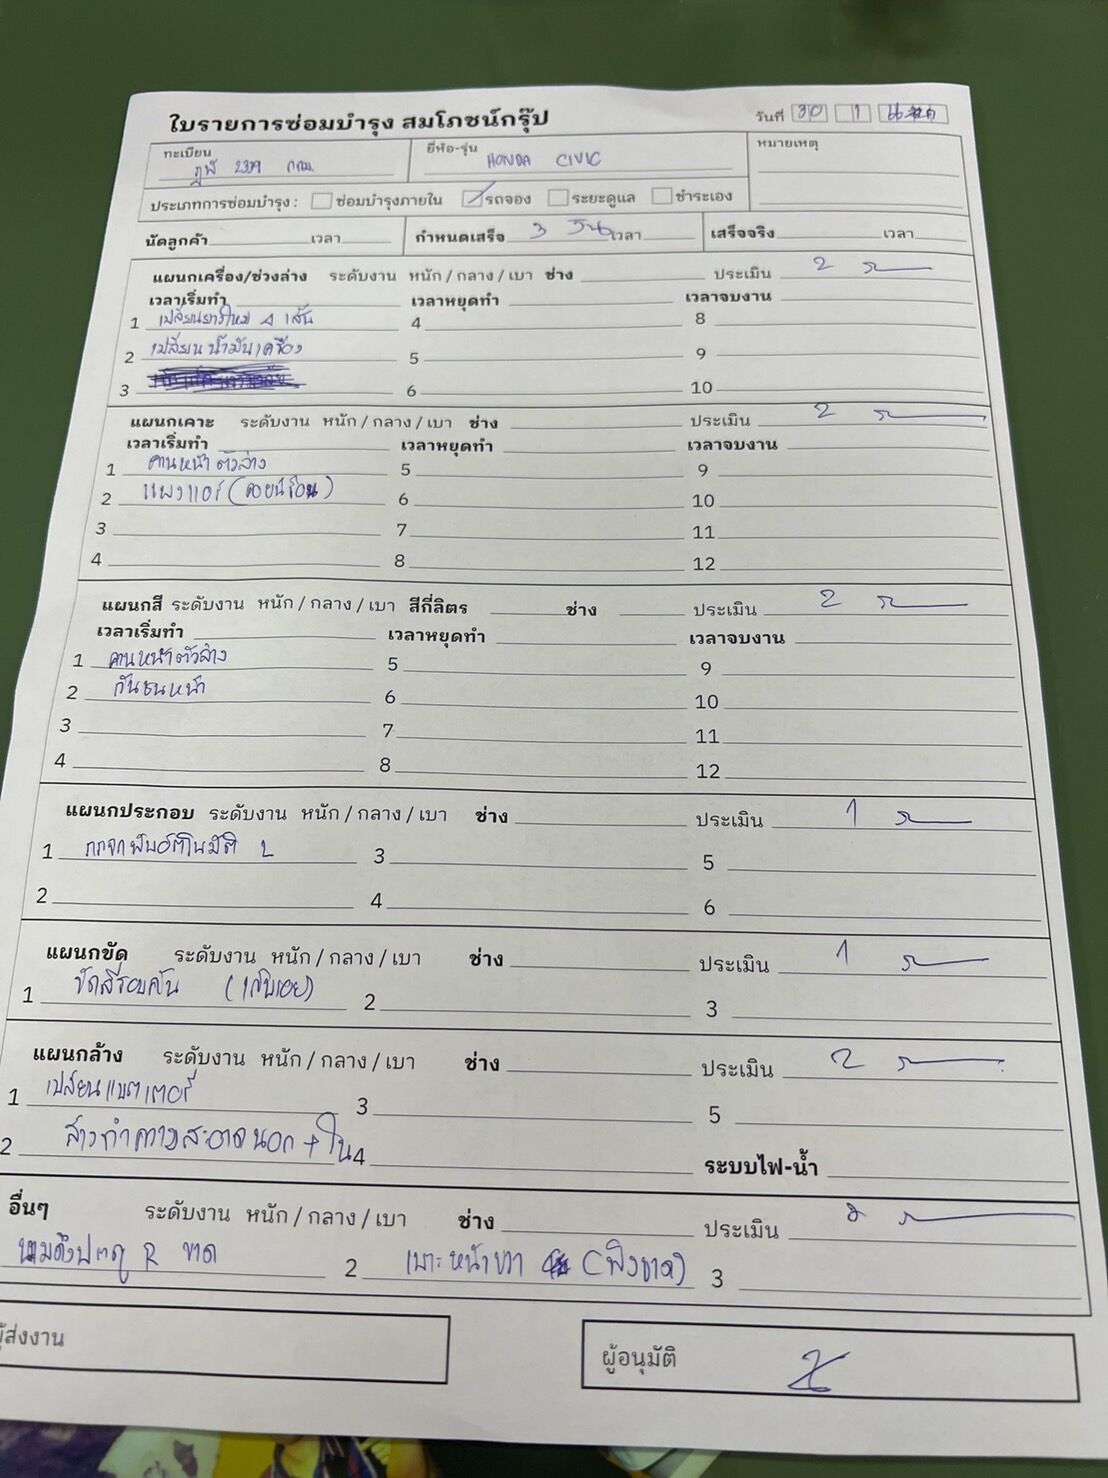 ใบรายการซ่อมบำรุง สมโภชน์กรุ๊ป
วันที่ 30 1
ทะเบียน 2379 กทม.
ยี่ห้อ-รุ่น HONDA CIVIC
หมายเหตุ
ประเภทการซ่อมบำรุง : ซ่อมบำรุงภายใน รถจอง ระยะดูแล ชำระเอง
นัดลูกค้า เวลา กำหนดเสร็จ 3 วัน เวลา เสร็จจริง เวลา
แผนกเครื่อง/ช่วงล่าง ระดับงาน หนัก / กลาง / เบา ช่าง ประเมิน 2
เวลาเริ่มทำ เวลาหยุดทำ เวลาจบงาน
1 เปลี่ยนยางใหม่ 4 เส้น 4 8
2 เปลี่ยนน้ำมันเครื่อง 5 9
3 6 10
แผนกเคาะ ระดับงาน หนัก / กลาง / เบา ช่าง ประเมิน 2
เวลาเริ่มทำ เวลาหยุดทำ เวลาจบงาน
1 คานหน้าตัวล่าง 5 9
2 แผงแอร์ (คอยน์ร้อน) 6 10
3 7 11
4 8 12
แผนกสี ระดับงาน หนัก / กลาง / เบา สีกี่ลิตร ช่าง ประเมิน 2
เวลาเริ่มทำ เวลาหยุดทำ เวลาจบงาน
1 คานหน้าตัวล่าง 5 9
2 กันชนหน้า 6 10
3 7 11
4 8 12
แผนกประกอบ ระดับงาน หนัก / กลาง / เบา ช่าง ประเมิน 1
1 กระจกพับอัตโนมัติ L 3 5
2 4 6
แผนกขัด ระดับงาน หนัก / กลาง / เบา ช่าง ประเมิน 1
1 ขัดสีรอบคัน 2 3
แผนกล้าง ระดับงาน หนัก / กลาง / เบา ช่าง ประเมิน 2
1 เปลี่ยนแบตเตอรี่ 3 5
2 ล้างทำความสะอาดนอก + ใน 4 ระบบไฟ-น้ำ
อื่นๆ ระดับงาน หนัก / กลาง / เบา ช่าง ประเมิน 2
นวมดึงประตู R ขาด 2 เบาะหน้าขวา (พิงขาด) 3
ผู้ส่งงาน
ผู้อนุมัติ